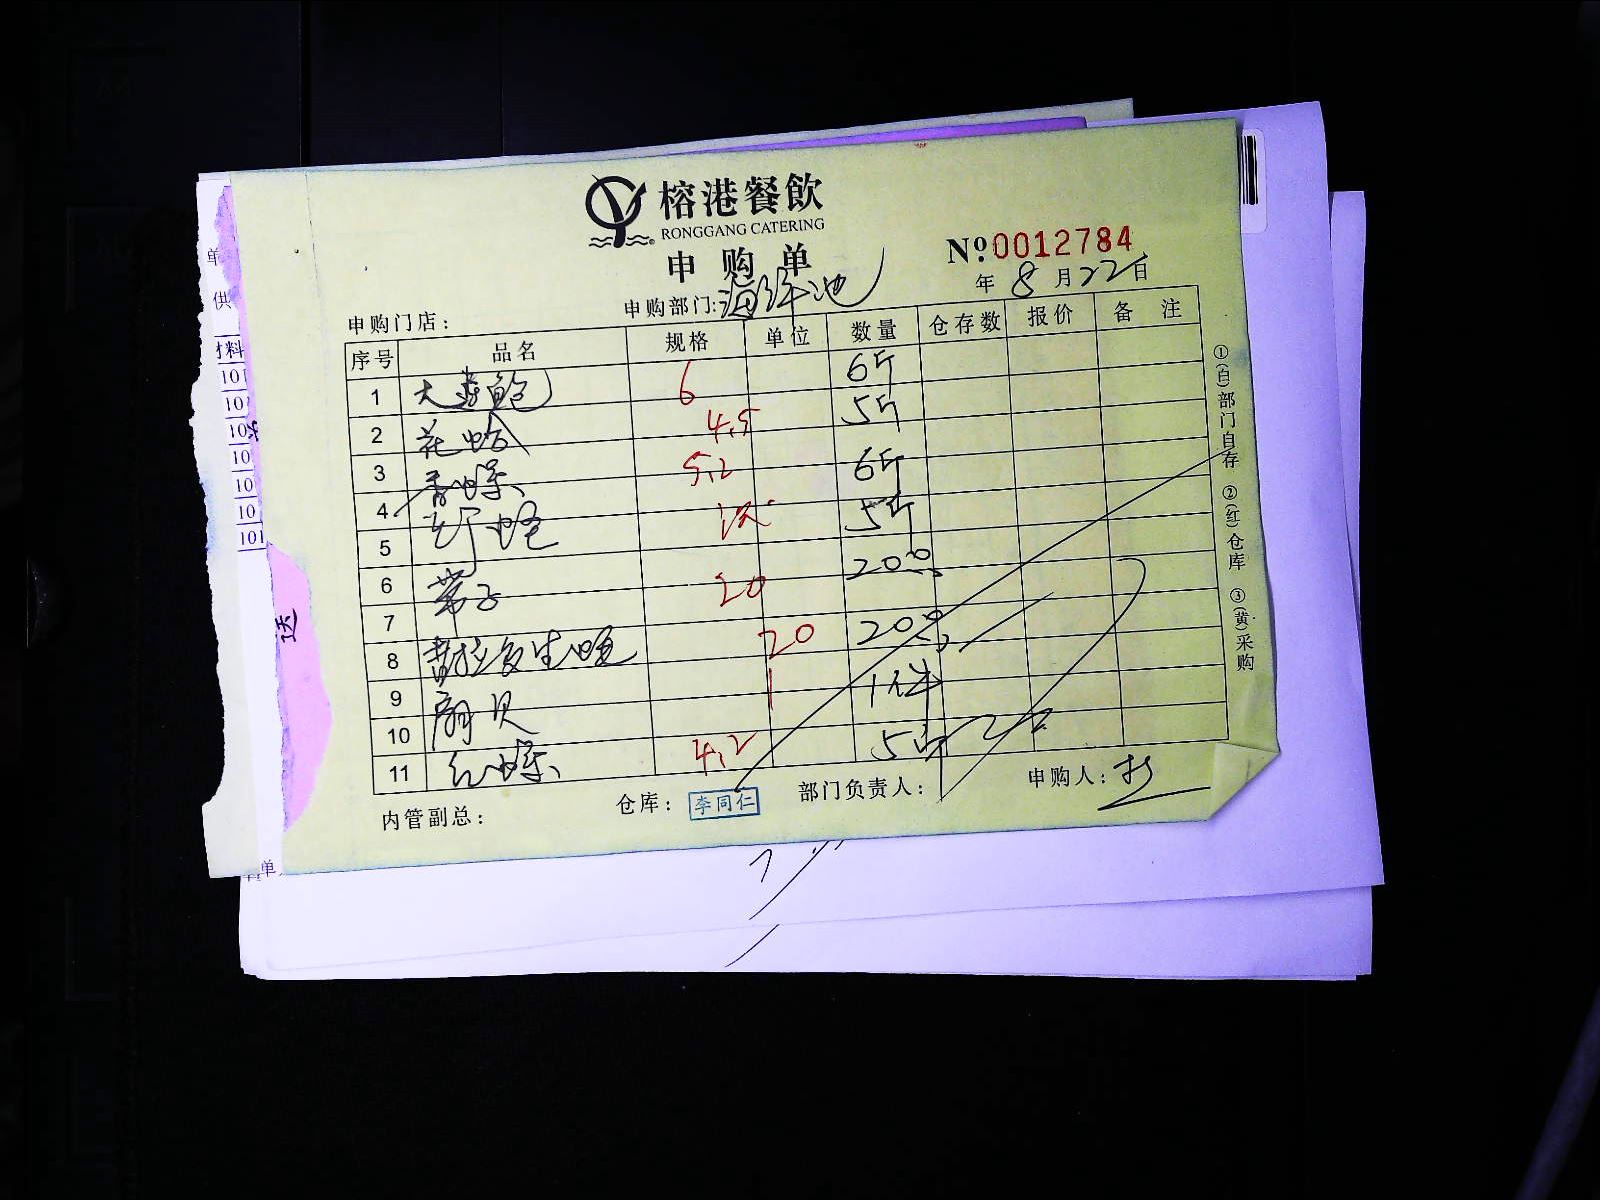 榕港餐飲
RONGGANG CATERING
申购单
№0012784
年 8 月 22 日
申购门店: 申购部门:海鲜池
序号 品名 规格 单位 数量 仓存数 报价 备注
1 大连鲍 6 6斤
2 花蛤 4.5 5斤
3 香螺 5.2 6斤
4
5 沢 5斤
6 带子 20 20只
7
8 普拉多生蚝 20 20只
9 扇贝 1 1件
10
11 红螺 4.2 5斤
内管副总: 仓库: 李同仁 部门负责人: 申购人:
①(白)部门自存 ②(红)仓库 ③(黄)采购
单
供
材料
101
101
101
10
10
10
101
送
单